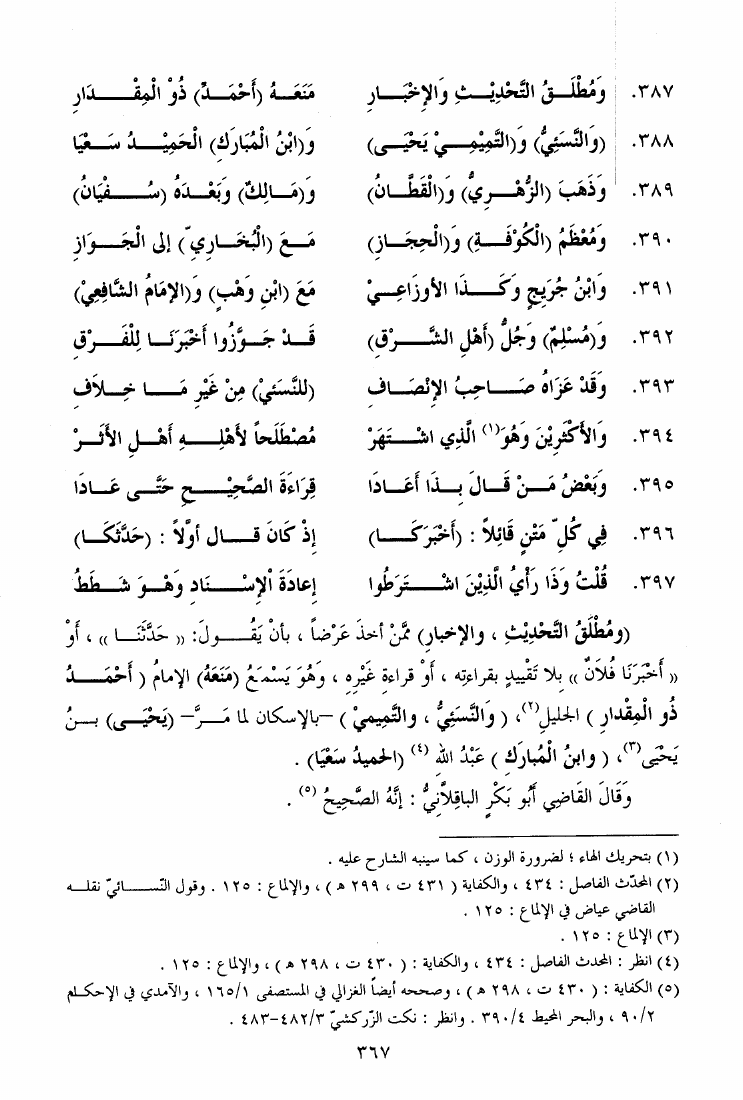 ٣٨٧. وَمُطْلَقُ التَّحْدِيْثِ وَالإِخْبَارِ مَنَعَهُ (أَحْمَدُ) ذُوْ الْمِقْدَارِ
٣٨٨. (وَالنَّسَئِيُّ) وَ(التَّمِيْمِيْ يَحْيَى) وَ(ابْنُ الْمُبَارَكِ) الْحَمِيْدُ سَعْيَا
٣٨٩. وَذَهَبَ (الزُّهْرِيُّ) وَ(الْقَطَّانُ) وَ(مَالِكٌ) وَبَعْدَهُ (سُفْيَانُ)
٣٩٠. وَمُعْظَمُ (الْكُوْفَةِ) وَ(الْحِجَازِ) مَعَ (الْبُخَارِيِّ) إلى الْجَوَازِ
٣٩١. وَابْنُ جُرَيجٍ وَكَذَا الأوزَاعِيْ مَعَ (ابْنِ وَهْبٍ) وَ(الإِمَامُ الشَّافِعِيْ)
٣٩٢. وَ(مُسْلِمٌ) وَجُلُّ (أَهْلِ الشَّرْقِ) قَدْ جَوَّزُوا أَخْبَرَنَا لِلْفَرْقِ
٣٩٣. وَقَدْ عَزَاهُ صَاحِبُ الإِنْصَافِ (للنَّسَئِيْ) مِنْ غَيْرِ مَا خِلاَفِ
٣٩٤. وَالأَكْثَرِيْنَ وَهُوَ(١) الَّذِي اشْتَهَرْ مُصْطَلَحاً لأَهْلِهِ أَهْلِ الأَثَرْ
٣٩٥. وَبَعْضُ مَنْ قَالَ بِذَا أَعَادَا قِرَاءَةَ الصَّحِيْحِ حَتَّى عَادَا
٣٩٦. فِي كُلِّ مَتْنٍ قَائِلاً : (أَخْبَرَكَا) إِذْ كَانَ قَال أوَّلاً : (حَدَّثَكَا)
٣٩٧. قُلْتُ وَذَا رَأْيُ الَّذِيْنَ اشْتَرَطُوا إعادَةَ الإِسْنَادِ وَهْوَ شَطَطُ
(ومُطْلَقُ التَّحْدِيْثِ ، والإخبارِ) ممَّنْ أخذَ عَرْضاً ، بأنْ يَقُولَ: « حَدَّثَنَا » ، أَوْ
« أَخْبَرَنَا فُلاَنٌ » بِلا تَقْييدٍ بقراءتِه ، أَوْ قراءةِ غَيْرِه ، وَهُوَ يَسْمَعُ (مَنَعَهُ) الإمامُ ( أَحْمَدُ
ذُو الْمِقْدارِ ) الجليلِ(٢)، ( وَالنَّسَئِيُّ ، والتَّمِيميْ ) –بالإسكان لما مَرَّ– (يَحْيَى) بنُ
يَحْيَى(٣)، ( وابنُ الْمُبارَكِ ) عَبْدُ اللهِ (٤) (الحميدُ سَعْيَا) .
وَقَالَ القَاضِي أَبُو بَكْرٍ الباقِلاَّنيُّ : إنَّهُ الصَّحِيحُ (٥) .
(١) بتحريك الهاء ؛ لضرورة الوزن ، كما سينبه الشارح عليه .
(٢) المحدّث الفاصل : ٤٣٤ ، والكفاية ( ٤٣١ ت ، ٢٩٩ ه‍ ) ، والإلماع : ١٢٥ . وقول النَّسائيّ نقله
القاضي عياض في الإلماع : ١٢٥ .
(٣) الإلماع : ١٢٥ .
(٤) انظر : المحدث الفاصل : ٤٣٤ ، والكفاية : ( ٤٣٠ ت ، ٢٩٨ ه‍ ) ، والإلماع : ١٢٥ .
(٥) الكفاية : ( ٤٣٠ ت ، ٢٩٨ ه‍ ) ، وصححه أيضاً الغزالي في المستصفى ١٦٥/١ ، والآمدي في الإحكام
٩٠/٢ ، والبحر المحيط ٣٩٠/٤ . وانظر : نكت الزّركشيّ ٤٨٢/٣-٤٨٣ .
٣٦٧